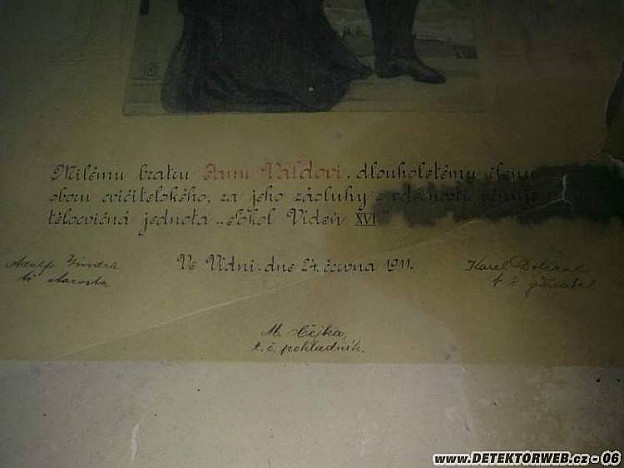 Milému bratru Janu Valdovi, dlouholetému členu
sboru cvičitelského, za jeho zásluhy s vděčností věnuje
tělocvičná jednota „Sokol Vídeň XVI."
Ve Vídni, dne 24. června 1911.
Adolf Jindra
t. č. starosta
Karel
t. č. jednatel
M. Čejka,
t. č. pokladník.
www.DETEKTORWEB.cz - 06